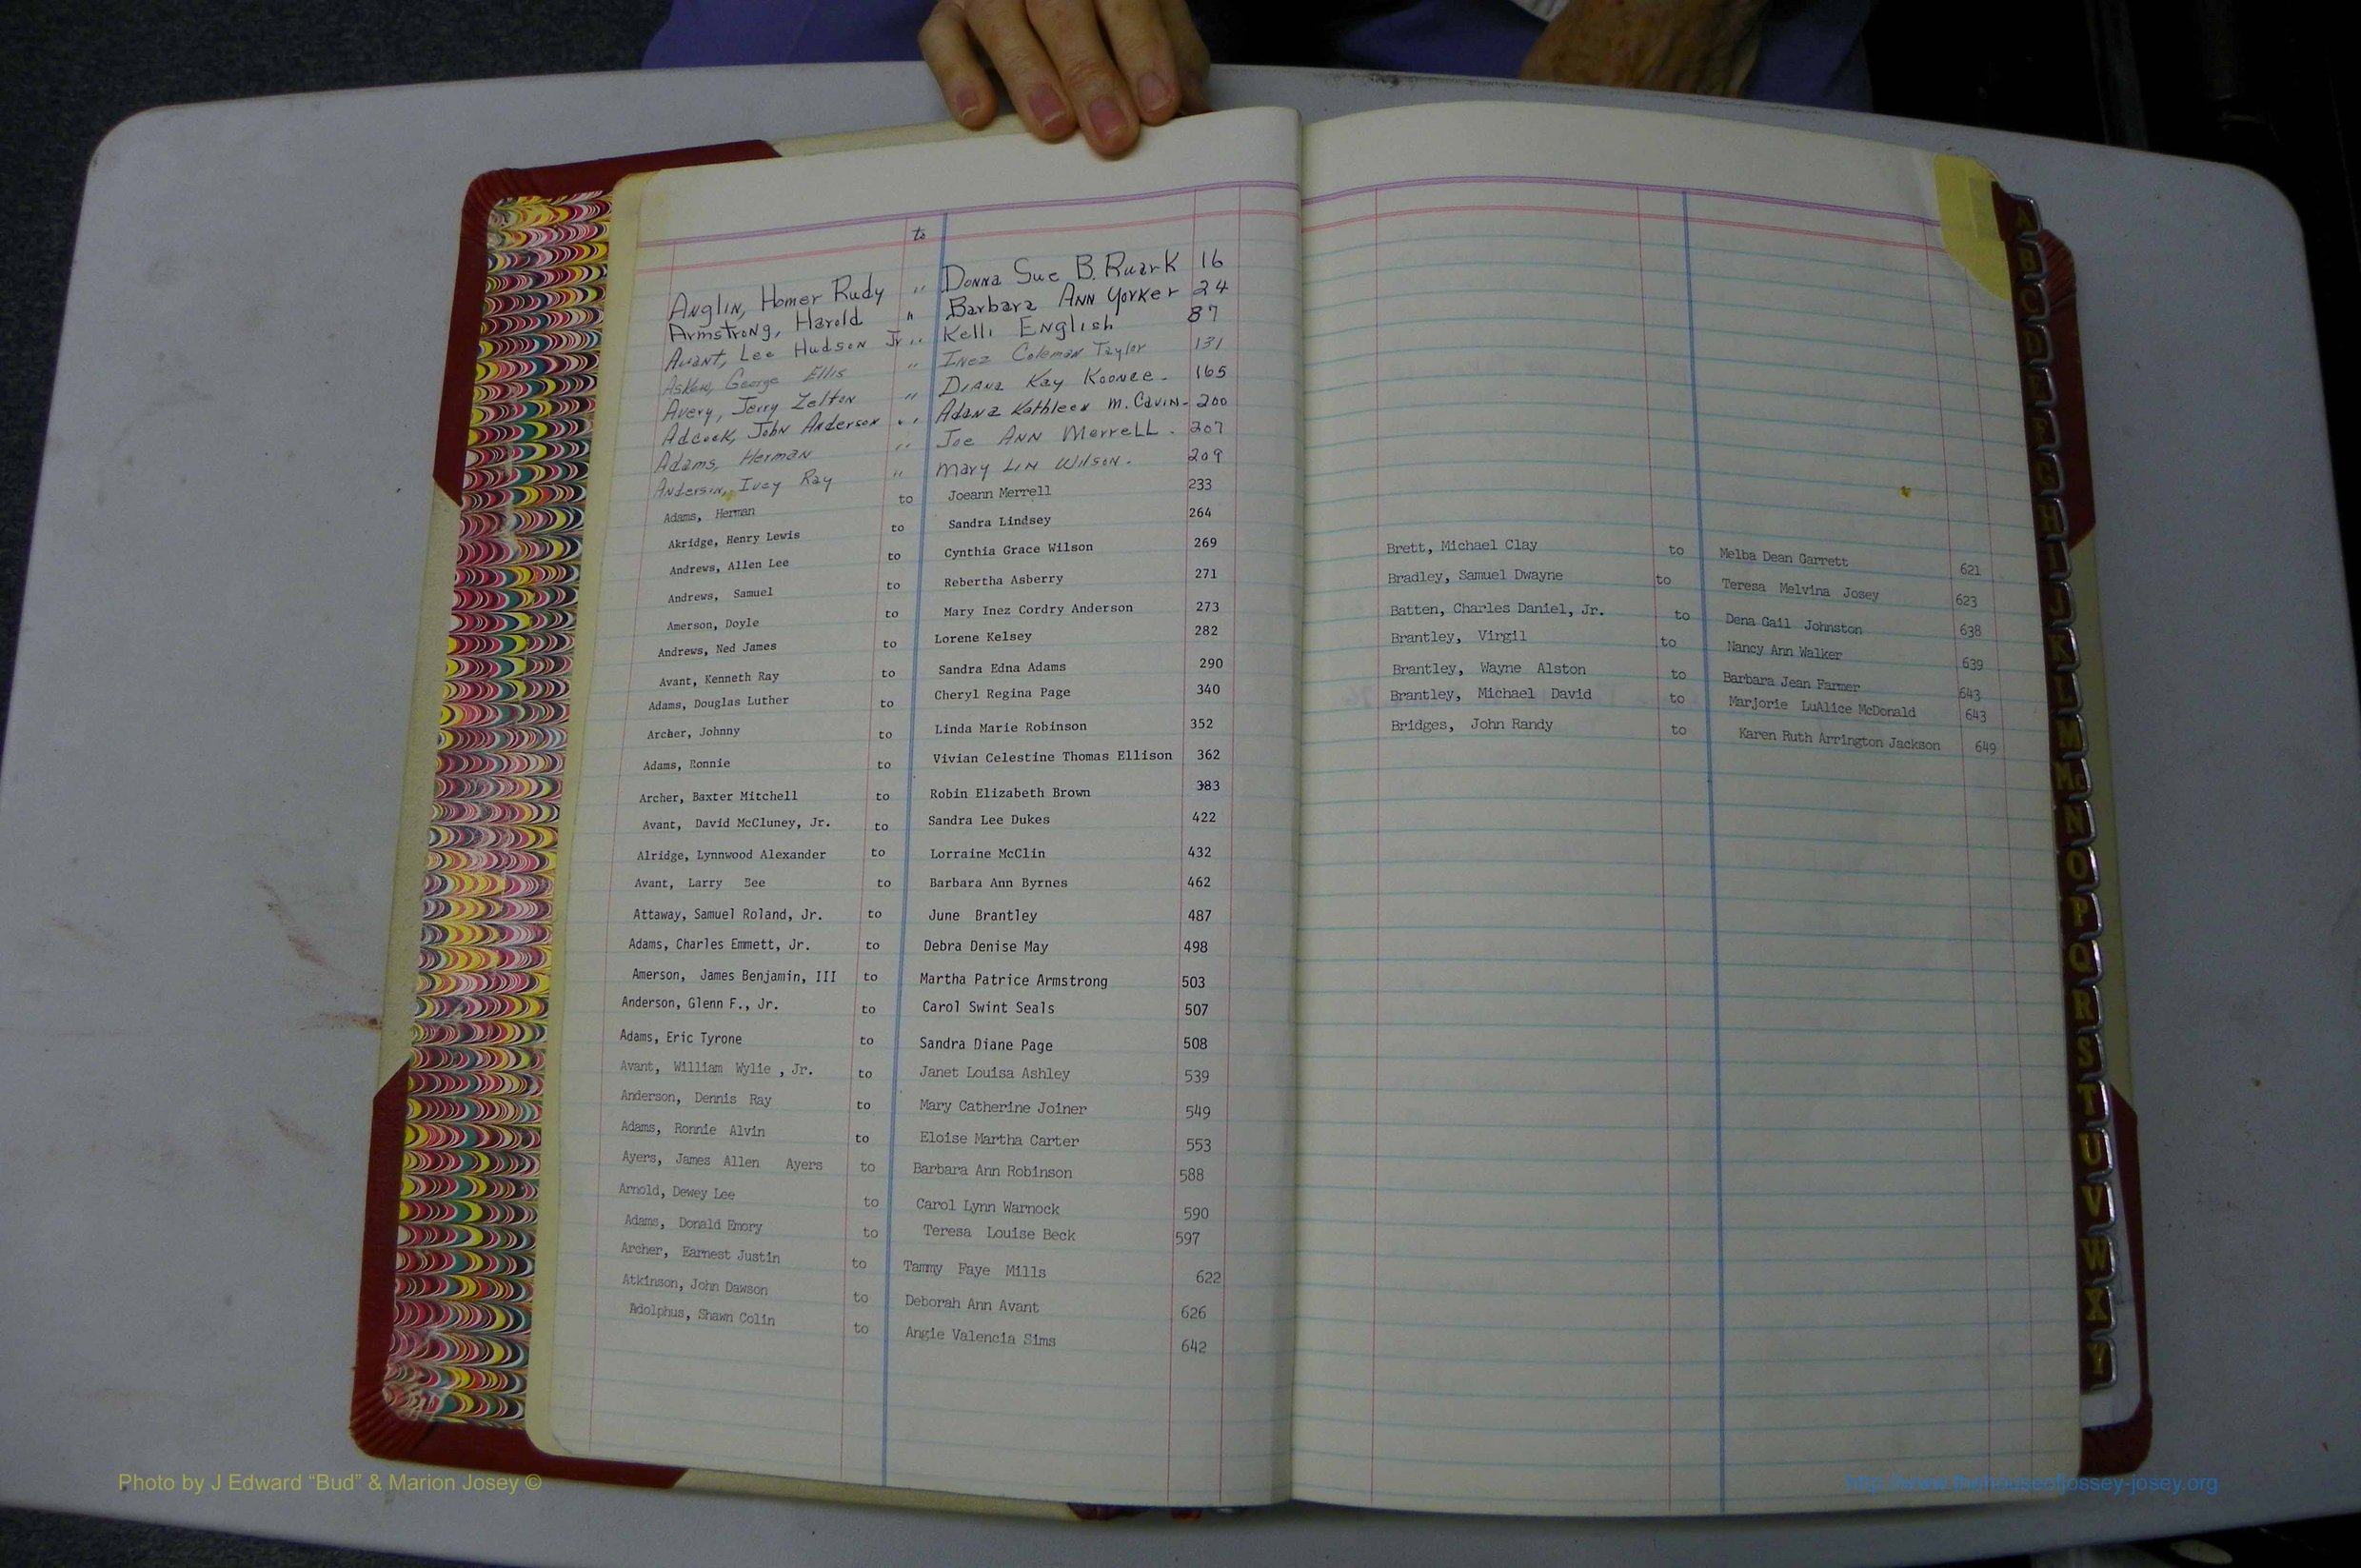 to
Anglin, Homer Rudy " Donna Sue B. Ruark 16
Armstrong, Harold " Barbara Ann Yorker 24
Avant, Lee Hudson Jr. " Kelli English 87
Askew, George Ellis " Inez Coleman Taylor 131
Avery, Jerry Zelton " Diana Kay Koonce. 165
Adcock, John Anderson " Adana Kathleen M. Cavin- 200
Adams, Herman " Joe Ann Merrell. 207
Anderson, Ivey Ray " Mary Lin Wilson. 209
Adams, Herman to Joeann Merrell 233
Akridge, Henry Lewis to Sandra Lindsey 264
Andrews, Allen Lee to Cynthia Grace Wilson 269
Andrews, Samuel to Rebertha Asberry 271
Amerson, Doyle to Mary Inez Cordry Anderson 273
Andrews, Ned James to Lorene Kelsey 282
Avant, Kenneth Ray to Sandra Edna Adams 290
Adams, Douglas Luther to Cheryl Regina Page 340
Archer, Johnny to Linda Marie Robinson 352
Adams, Ronnie to Vivian Celestine Thomas Ellison 362
Archer, Baxter Mitchell to Robin Elizabeth Brown 383
Avant, David McCluney, Jr. to Sandra Lee Dukes 422
Alridge, Lynnwood Alexander to Lorraine McClin 432
Avant, Larry Bee to Barbara Ann Byrnes 462
Attaway, Samuel Roland, Jr. to June Brantley 487
Adams, Charles Emmett, Jr. to Debra Denise May 498
Amerson, James Benjamin, III to Martha Patrice Armstrong 503
Anderson, Glenn F., Jr. to Carol Swint Seals 507
Adams, Eric Tyrone to Sandra Diane Page 508
Avant, William Wylie , Jr. to Janet Louisa Ashley 539
Anderson, Dennis Ray to Mary Catherine Joiner 549
Adams, Ronnie Alvin to Eloise Martha Carter 553
Ayers, James Allen Ayers to Barbara Ann Robinson 588
Arnold, Dewey Lee to Carol Lynn Warnock 590
Adams, Donald Emory to Teresa Louise Beck 597
Archer, Earnest Justin to Tammy Faye Mills 622
Atkinson, John Dawson to Deborah Ann Avant 626
Adolphus, Shawn Colin to Angie Valencia Sims 642
Brett, Michael Clay to Melba Dean Garrett 621
Bradley, Samuel Dwayne to Teresa Melvina Josey 623
Batten, Charles Daniel, Jr. to Dena Gail Johnston 638
Brantley, Virgil to Nancy Ann Walker 639
Brantley, Wayne Alston to Barbara Jean Farmer 643
Brantley, Michael David to Marjorie LuAlice McDonald 643
Bridges, John Randy to Karen Ruth Arrington Jackson 649
A
B
C
D
E
F
G
H
I
J
K
L
M
Mc
N
O
P
Q
R
S
T
U
V
W
X
Y
Photo by J Edward “Bud” & Marion Josey ©
http://www.thehouseofjossey-josey.org